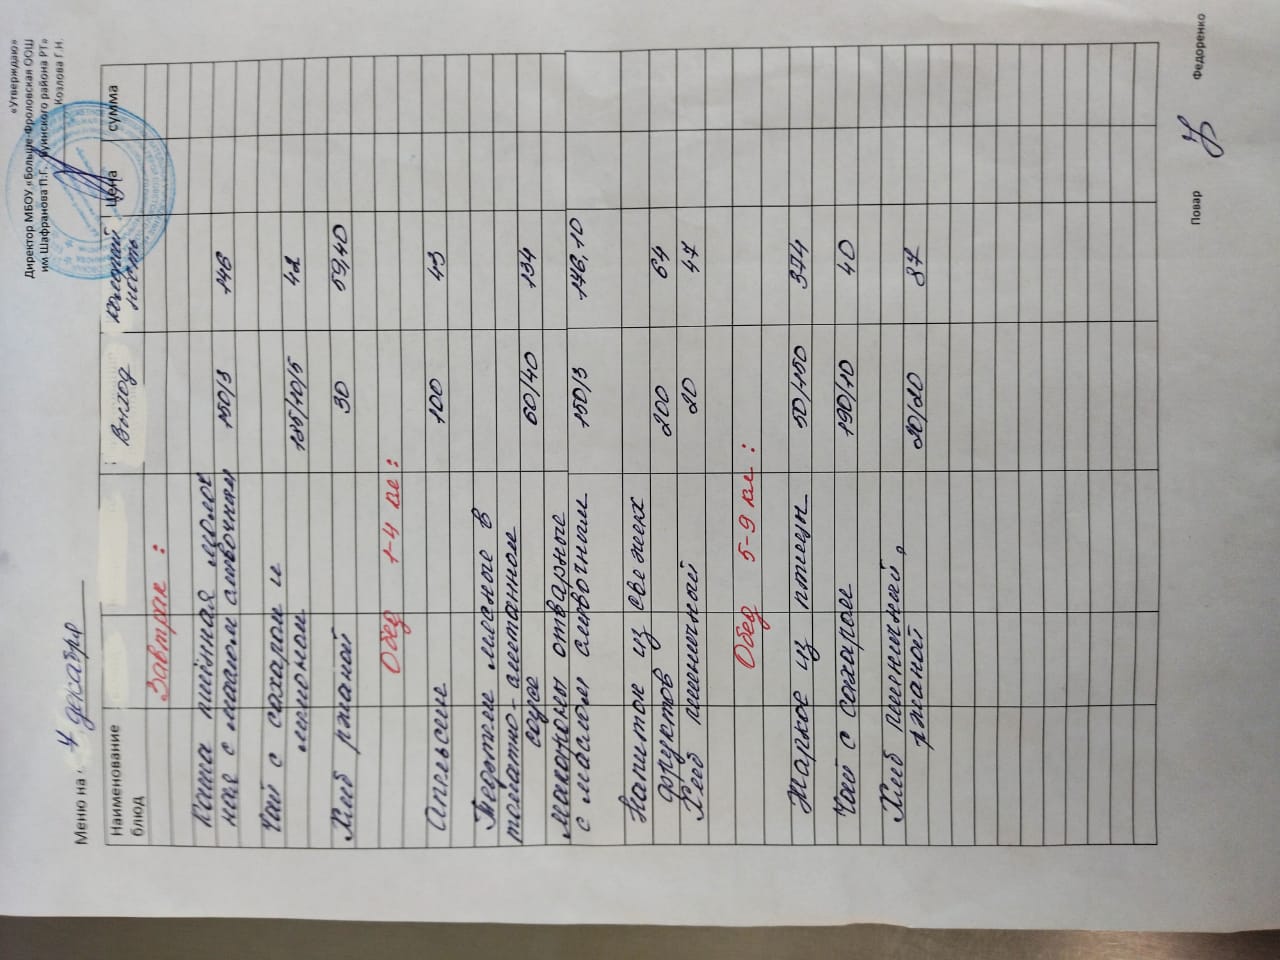 «Утверждаю»
Директор МБОУ «Больше-Фроловская ООШ
им Шафранова П.Г., Буинского района РТ»
Козлова Г.И.
Меню на 4 декабря
Наименование блюд Выход калорий ность цена сумма
Завтрак :
Каша пшённая молоч
ная с маслом сливочным 150/3 146
Чай с сахаром и
лимоном 185/10/5 42
Хлеб ржаной 30 59,40
Обед 1-4 кл :
Апельсин 100 43
Тефтели мясные в
томатно-сметанном
соусе 60/40 134
Макароны отварные
с маслом сливочним 150/3 146,10
Напиток из свежих
фруктов 200 64
Хлеб пшеничный 20 47
Обед 5-9 кл :
Жаркое из птицы 50/150 374
Чай с сахаром 190/10 40
Хлеб пшеничный,
ржаной 20/20 87
Повар Федоренко